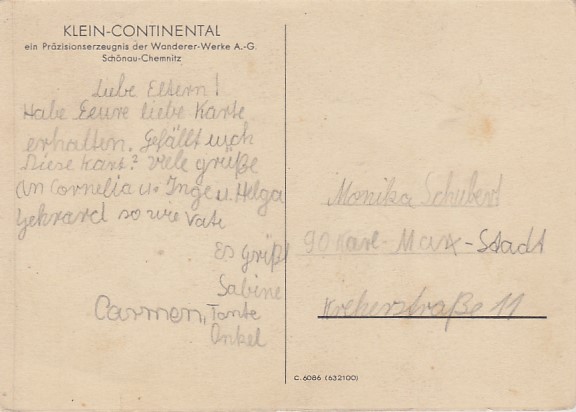 KLEIN-CONTINENTAL
ein Präzisionserzeugnis der Wanderer-Werke A.-G.
Schönau-Chemnitz
Liebe Eltern!
Habe Eeure liebe Karte
erhalten. Gefällt uch
Diese Kart? Viele grüße
An Cornelia u. Inge u. Helga
Gehrard so wie Vati
Es grüßt
Sabine
Carmen, Tante
Onkel
Monika Schubert
90 Karl-Marx-Stadt
Kreherstraße 11
C. 6086 (632100)